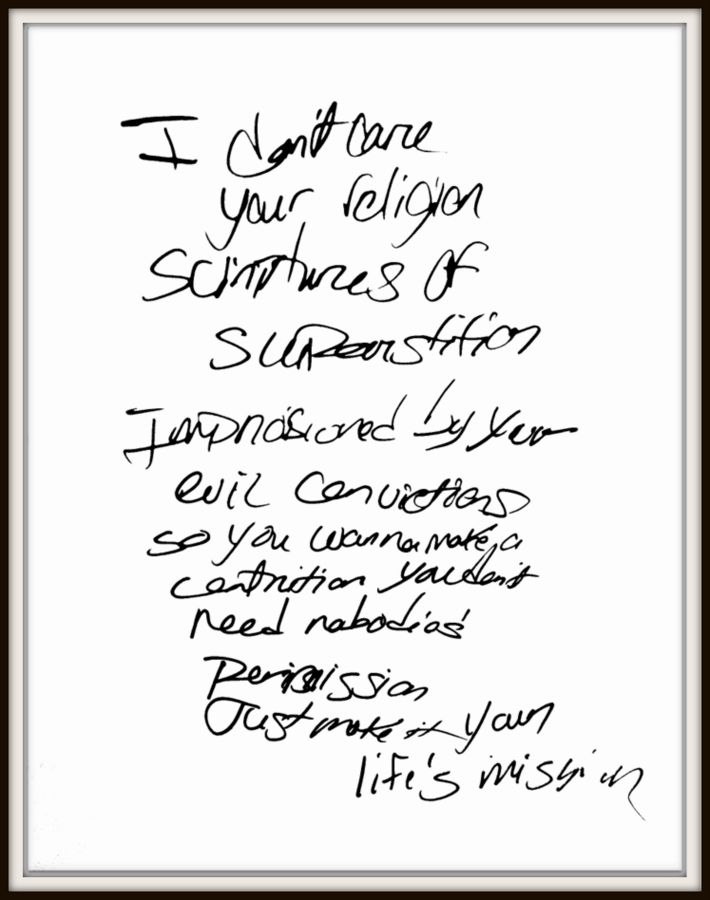 I don't care
your religion
Scriptures of
superstition
Imprisioned by your
evil convictions
so you wanna make a
contrition you don't
need nobodies'
Permission
Just make it your
life's mission